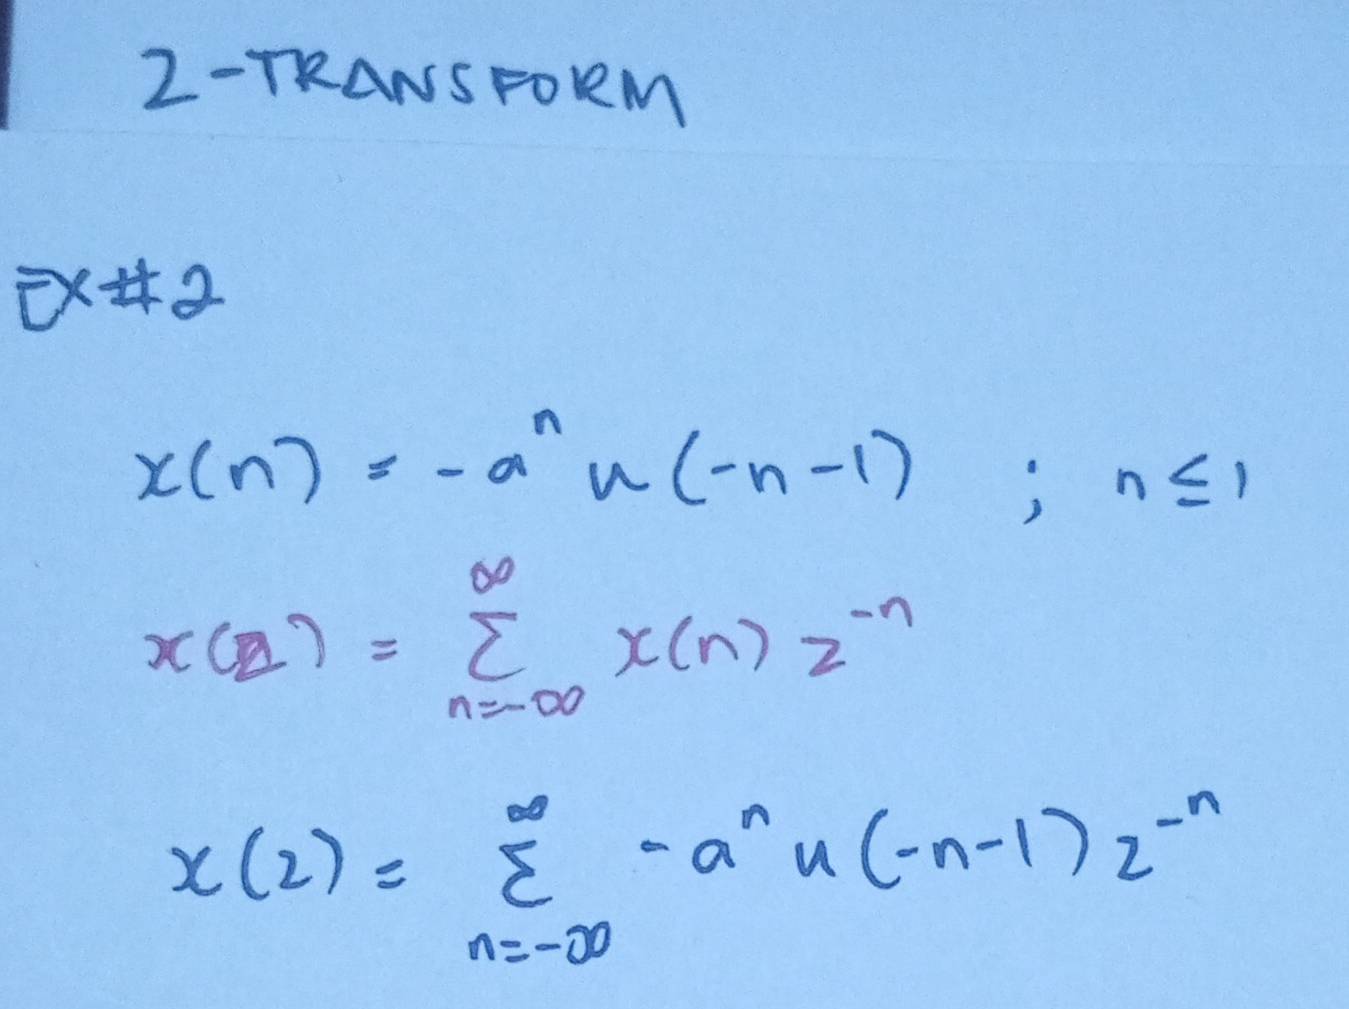 Z-TRANSFORM
EX#2
x(n) = -aⁿ u(-n-1) ; n≤1
x(z) = ∞ Σ n=-∞ x(n) z⁻ⁿ
x(z) = ∞ Σ n=-∞ -aⁿ u(-n-1) z⁻ⁿ